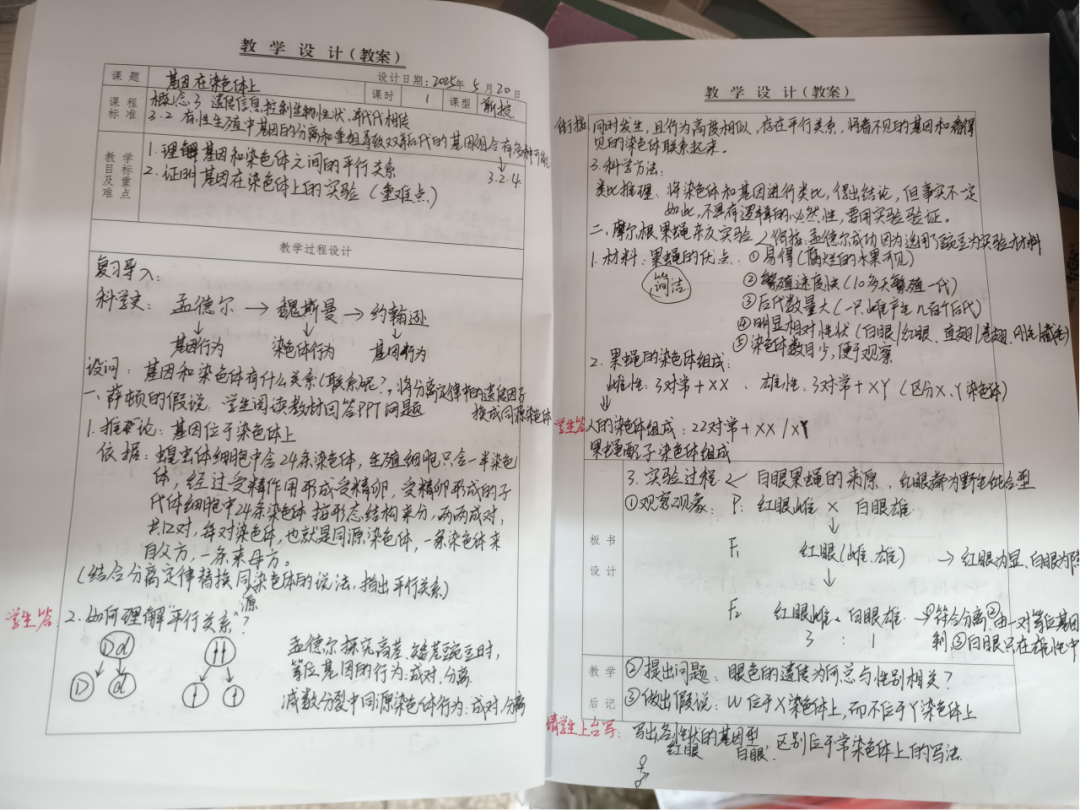 教学设计(教案)
设计日期:2025年5月20日
课题 基因在染色体上 课时 1 课型 新授
课程标准 概念3 遗传信息控制生物性状,并代代相传
3.2 有性生殖中基因的分离和重组导致双亲后代的基因组合有多种可能
3.2.4
教学目标及重点难点
1.理解基因和染色体之间的平行关系
2.证明基因在染色体上的实验(重难点)
教学过程设计
复习导入:
科学史: 孟德尔 → 魏斯曼 → 约翰逊
基因行为 染色体行为 基因行为
设问:基因和染色体有什么关系(联系)呢?,将分离定律中的遗传因子
换成同源染色体
一、萨顿的假说 学生阅读教材回答PPT问题
1.推论:基因位于染色体上
依据:蝗虫体细胞中含24条染色体,生殖细胞只含一半染色
体,经过受精作用形成受精卵,受精卵形成的子
代体细胞中24条染色体 按形态结构来分,两两成对,
共12对,每对染色体,也就是同源染色体,一条染色体来
自父方,一条来母方。
(结合分离定律替换同源染色体的说法,指出平行关系)
学生答 2.如何理解"平行关系"?
Dd
D d
孟德尔探究高茎、矮茎豌豆时,
等位基因的行为:成对,分离
减数分裂中同源染色体行为:成对,分离
教学设计(教案)
衔接 同时发生,且行为高度相似,存在平行关系,将看不见的基因和看得
见的染色体联系起来。
3.科学方法:
类比推理:将染色体和基因进行类比,得出结论,但事实不一定
如此,不具有逻辑的必然性,需用实验验证。
二、摩尔根果蝇杂交实验 衔接:孟德尔成功因为选用了豌豆为实验材料
1.材料:果蝇的优点:①易得(腐烂的水果可见)
简洁
②繁殖速度快(10多天繁殖一代)
③后代数量大(一只雌产生几百个后代)
④明显相对性状(白眼/红眼、直翅/卷翅、
⑤染色体数目少,便于观察
2.果蝇的染色体组成:
雌性:3对常+XX、雄性:3对常+XY(区分X、Y染色体)
学生答 人的染色体组成:22对常+XX/XY
果蝇配子染色体组成
板书设计
3.实验过程 白眼果蝇的来源、红眼都为野生纯合型
①观察现象: P: 红眼雌 × 白眼雄
F₁ 红眼(雌、雄) → 红眼为显、白眼为隐
F₂ 红眼雌、白眼雄 → ①符合分离②由一对等位基因
3 : 1 制,③白眼只在雄性中
教学后记
②提出问题:眼色的遗传为何总与性别相关?
③做出假说:W位于X染色体上,而不位于Y染色体上
请学生上台写: 写出各性状的基因型,区别位于常染色体上的写法
红眼 白眼
♀
♂